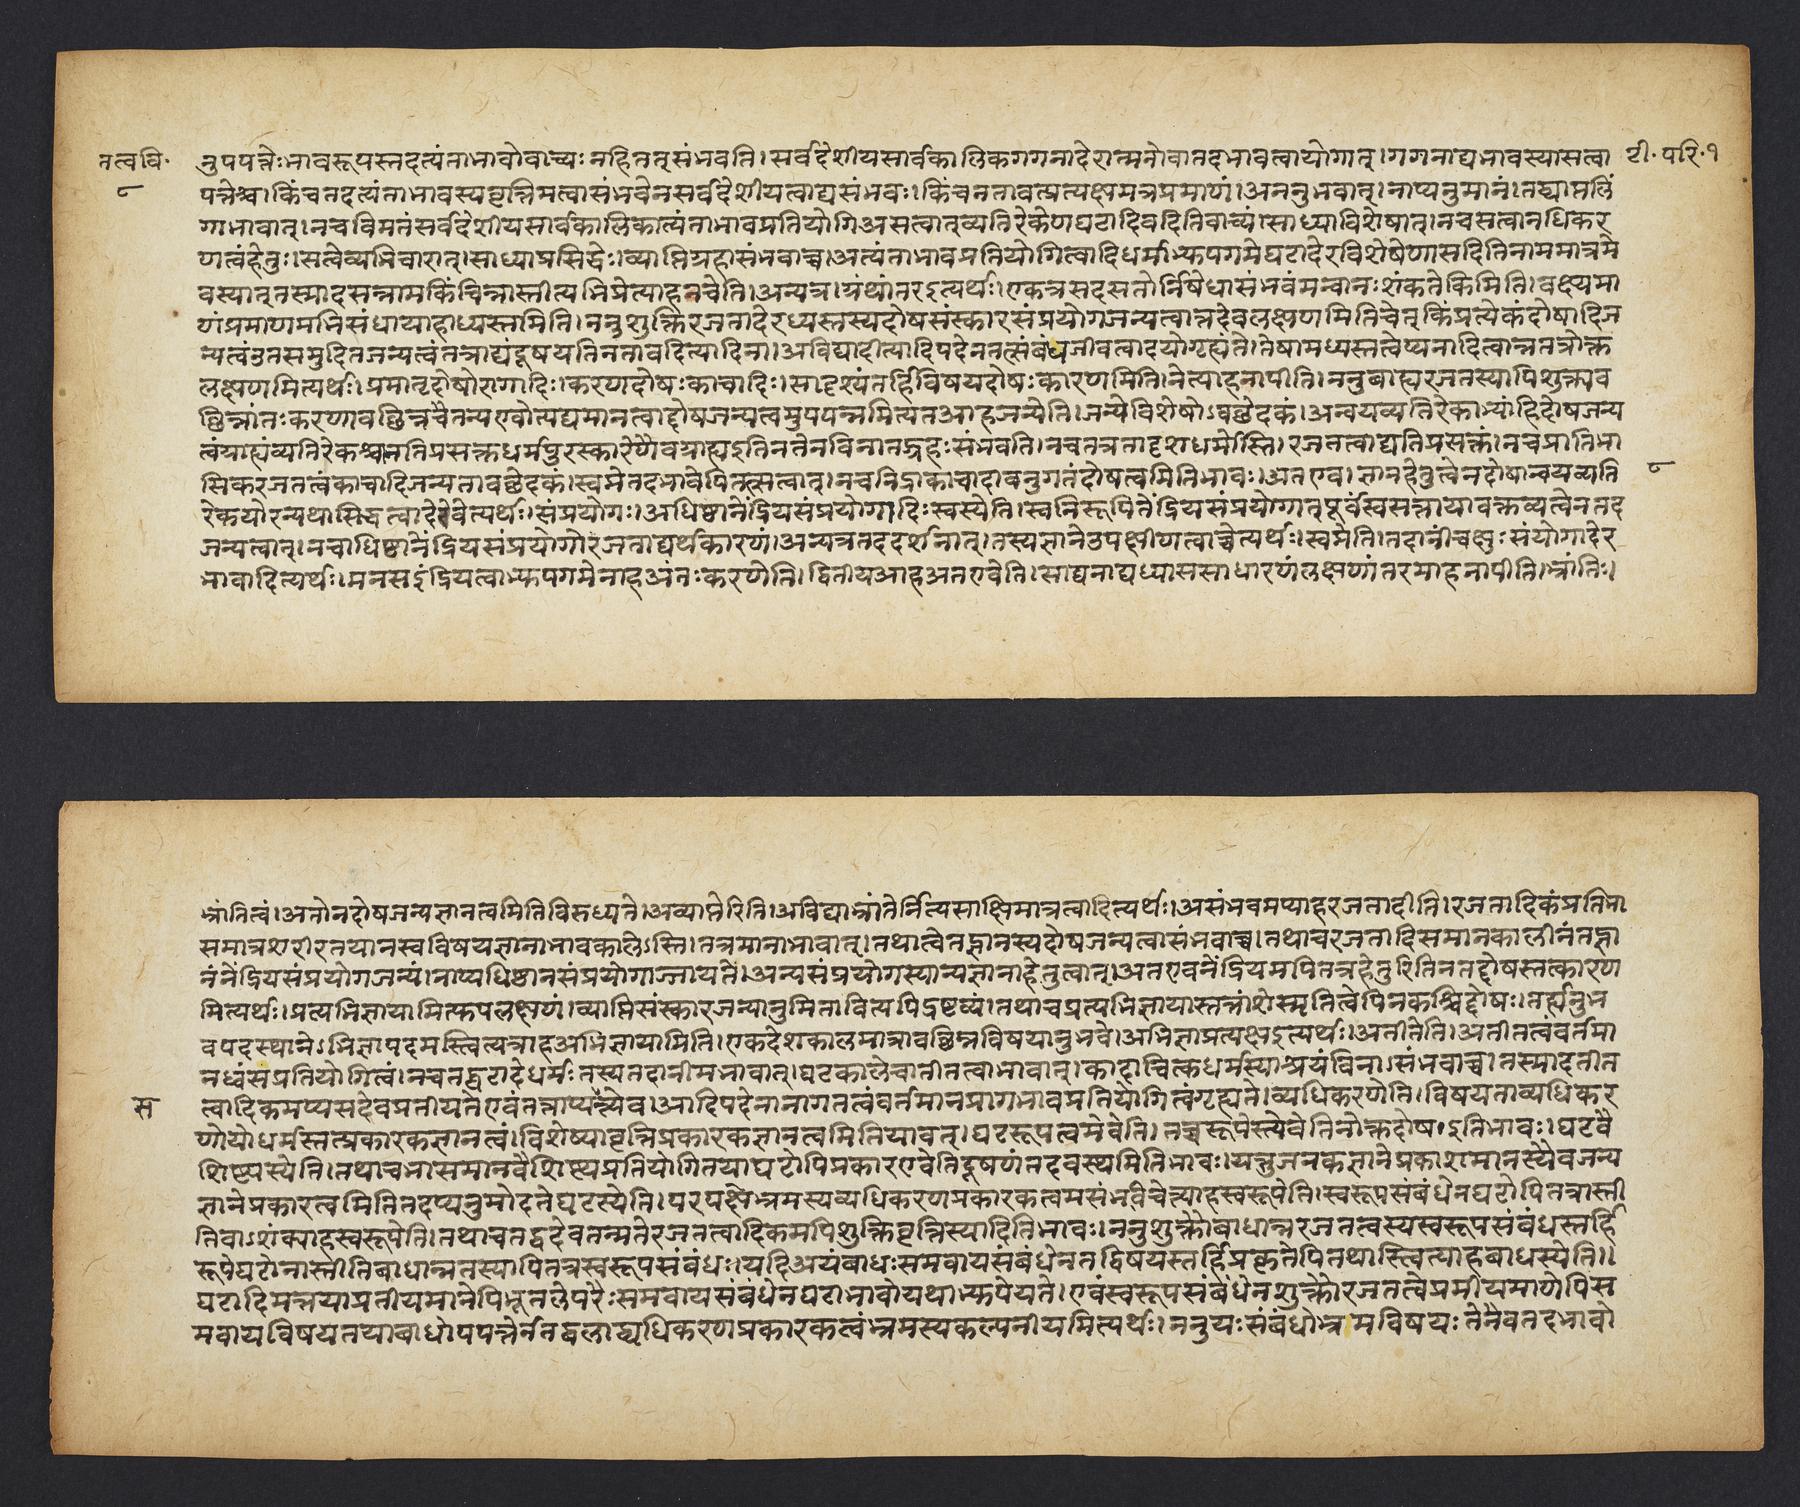 तत्वविः
८
टी॰ परि॰१
नुपपत्तेः।भावरूपस्तदत्यंताभावोवाच्यः नहितत्संभवति। सर्वदेशीयसार्वकालिकगगनादेरात्मनोवातदभावत्वायोगात्। गगनाद्यभावस्यासत्वा
पत्तेश्च। किंचतदत्यंताभावस्यवृत्तिमत्वासंभवेनसर्वदेशीयत्वाद्यसंभवः। किंचनतावत्प्रत्यक्षमत्रप्रमाणं। अननुभवात्। नाप्यनुमानं। तद्व्याप्तलिं
गाभावात्। नचविमतंसर्वदेशीयसार्वकालिकात्यंताभावप्रतियोगिअसत्वात्व्यतिरेकेणघटादिवदितिवाच्यं। साध्याविशेषात्। नचसत्वानधिकर
णत्वंहेतुः। सत्वेव्यभिचारात्। साध्याप्रसिद्धेः। व्याप्तिग्रहासंभवाच्च। अत्यंताभावप्रतियोगित्वादिधर्माभ्युपगमेघटादेरविशेषेणासदितिनाममात्रमे
वस्यात्तस्मादसन्नामकिंचिन्नास्तीत्यभिप्रेत्याहनचेति। अन्यत्र। ग्रंथांतरइत्यर्थः। एकत्रसदसतोर्निषेधासंभवंमन्वानः शंकतेकिमिति। वक्ष्यमा
णंप्रमाणमभिसंधायाहाध्यस्तमिति। ननुशुक्तिरजतादेरध्यस्तस्यदोषसंस्कारसंप्रयोगजन्यत्वात्तदेवलक्षणमितिचेत् किंप्रत्येकंदोषादिज
न्यत्वंउतसमुदितजन्यत्वंतत्राद्यंदूषयतिनतावदित्यादिना। अविद्यादीत्यादिपदेनतत्संबंधजीवत्वादयोगृह्यंते। तेषामध्यस्तत्वेप्यनादित्वान्नतत्रोक्त
लक्षणमित्यर्थः। प्रमातृदोषोरागादिः। करणदोषः काचादिः। सादृश्यंतर्हिविषयदोषः कारणमिति। नेत्याहनापीति। ननुबाह्यरजतस्यापिशुक्त्यव
च्छिन्नांतःकरणावच्छिन्नचैतन्यएवोत्पद्यमानत्वाद्दोषजन्यत्वमुपपन्नमित्यतआहजन्येति। जन्येविशेषोऽवच्छेदकं। अन्वयव्यतिरेकाभ्यांहिदोषजन्य
त्वंग्राह्यंव्यतिरेकश्चानतिप्रसक्तधर्मपुरस्कारेणैवग्राह्यइतिनतेनविनातद्ग्रहः संभवति। नचतत्रतादृशधर्मोस्ति। रजतत्वाद्यतिप्रसक्तं। नचप्रातिभा
सिकरजतत्वंकाचादिजन्यतावच्छेदकं। स्वप्नेतदभावेपितत्सत्वात्। नचनिद्राकाचादावनुगतंदोषत्वमितिभावः। अतएव। ज्ञानहेतुत्वेनदोषान्वयव्यति
८
रेकयोरन्यथासिद्धत्वादेवेत्यर्थः। संप्रयोगः। अधिष्ठानेंद्रियसंप्रयोगादिः स्वस्येति। स्वनिरूपितेंद्रियसंप्रयोगात्पूर्वंस्वसत्तायावक्तव्यत्वेनतद
जन्यत्वात्। नचाधिष्ठानेंद्रियसंप्रयोगोरजताद्यर्थकारणं। अन्यत्रतददर्शनात्। तस्यज्ञानेउपक्षीणत्वाच्चेत्यर्थः। स्वप्नेति। तदानींचक्षुःसंयोगादेर
भावादित्यर्थः। मनसइंद्रियत्वाभ्युपगमेनाहअंतःकरणेति। द्वितीयआहअतएवेति। साद्यनाद्यध्याससाधारणंलक्षणांतरमाहनापीति। भ्रांतिः।
भ्रांतित्वं। अतोनदोषजन्यज्ञानत्वमितिविरुध्यते। अव्याप्तेरिति। अविद्याभ्रांतेर्नित्यसाक्षिमात्रत्वादित्यर्थः। असंभवमप्याहरजतादीति। रजतादिकंप्रतिभा
समात्रशरीरतयानस्वविषयज्ञानाभावकालेऽस्ति। तत्रमानाभावात्। तथात्वेतद्ज्ञानस्यदोषजन्यत्वासंभवाच्च। तथाचरजतादिसमानकालीनंतद्ज्ञा
नंनेंद्रियसंप्रयोगजन्यं। नाप्यधिष्ठानसंप्रयोगाज्जायते। अन्यसंप्रयोगस्यान्यज्ञानाहेतुत्वात्। अतएवनेंद्रियमपितत्रहेतुरितिनतद्दोषस्तत्कारण
मित्यर्थः। प्रत्यभिज्ञायामित्युपलक्षणं। व्याप्तिसंस्कारजन्यानुमितावित्यपिद्रष्टव्यं। तथाचप्रत्यभिज्ञायास्तत्तांशेस्मृतित्वेपिनकश्चिद्दोषः। तर्ह्यनुभ
वपदस्थानेऽभिज्ञापदमस्त्वित्यत्राहअभिज्ञायामिति। एकदेशकालमात्रावच्छिन्नविषयानुभवे। अभिज्ञाप्रत्यक्षइत्यर्थः। अतीतेति। अतीतत्वंवर्तमा
नध्वंसप्रतियोगित्वं। नचतद्घटादेर्धर्मः तस्यतदानीमभावात्। घटकालेचातीतत्वाभावात्। कादाचित्कधर्मस्याश्रयंविना। संभवाच्च। तस्मादतीत
स
त्वादिकमप्यसदेवप्रतीयतेएवंतत्राप्यस्त्येव। आदिपदेनानागतत्वंवर्तमानप्रागभावप्रतियोगित्वंगृह्यते। व्यधिकरणेति। विषयताव्यधिकर
णोयोधर्मस्तत्प्रकारकज्ञानत्वं। विशेष्यावृत्तिप्रकारकज्ञानत्वमितियावत्। घटरूपत्वमेवेति। तच्चरूपेस्त्येवेतिनोक्तदोषइतिभावः। घटवै
शिष्ट्यस्येति। तथाचभासमानवैशिष्ट्यप्रतियोगितयाघटोपिप्रकारएवेतिदूषणंतदवस्थमितिभावः। यत्तुजनकज्ञानेप्रकाशमानस्यैवजन्य
ज्ञानेप्रकारत्वमितितदप्यनुमोदतेघटस्येति। परपक्षेभ्रमस्यव्यधिकरणप्रकारकत्वमसंभवीचेत्याहस्वरूपेति। स्वरूपसंबंधेनघटोपितत्रास्ती
तिवाऽशंक्याहस्वरूपेति। तथाचतद्वदेवतन्मतेरजतत्वादिकमपिशुक्तिवृत्तिस्यादितिभावः। ननुशुक्तौबाधान्नरजतत्वस्यस्वरूपसंबंधस्तर्हि
रूपेघटोनास्तीतिबाधान्नतस्यापितत्रस्वरूपसंबंधः। यदिअयंबाधःसमवायसंबंधेनतद्विषयस्तर्हिप्रकृतेपितथास्त्वित्याहबाधस्येति।।
घटादिमत्तयाप्रतीयमानेपिभूतलेपरैःसमवायसंबंधेनघटाभावोयथाभ्युपेयते। एवंस्वरूपसंबंधेनशुक्तौरजतत्वेप्रमीयमाणेपिस
मवायविषयतयाबाधोपपत्तेर्नतद्बलाद्व्यधिकरणप्रकारकत्वंभ्रमस्यकल्पनीयमित्यर्थः। ननुयःसंबंधोभ्रमविषयः तेनैवतदभावो